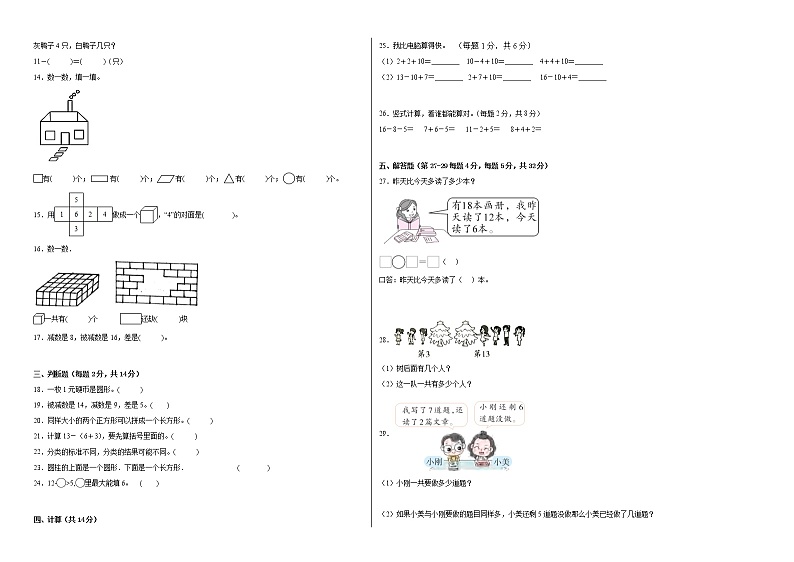 灰鸭子4只，白鸭子几只？
11-(　　)=(　　)(只)
14．数一数，填一填。
有(　　)个；有(　　)个；有(　　)个；有(　　)个；有(　　)个。
5
15．用 1 6 2 4 做成一个，“4”的对面是(　　)。
3
16．数一数．
一共有(　　)个　还缺(　　)块
17．减数是8，被减数是16，差是(　　)。
三、判断题（每题2分，共14分）
18．一枚1元硬币是圆形。(　　)
19．被减数是14，减数是9，差是5。(　　)
20．同样大小的两个正方形可以拼成一个长方形。(　　)
21．计算13－（6＋3），要先算括号里面的。(　　)
22．分类的标准不同，分类的结果可能不同。(　　)
23．圆柱的上面是一个圆形．下面是一个长方形．(　　)
24．12-○>5，○里最大能填6。(　　)
四、计算（共14分）
25．我比电脑算得快。（每题1分，共6分）
（1）2＋2＋10=______　10－4＋10=______　4＋4＋10=______
（2）13－10＋7=______　2＋7＋10=______　16－10＋4=______
26．竖式计算，看谁都能算对。（每题2分，共8分）
16－8－5=　7＋6－5=　11－2＋5=　8＋4＋2=
五、解答题（第25-29每题4分，每题6分，共32分）
27．昨天比今天多读了多少本？
有18本画册，我昨
天读了12本，今天
读了6本。
□○□=□（　）
口答：昨天比今天多读了（　）本。
28．
第3　第13
（1）树后面有几个人？
（2）这一队一共有多少个人？
我写了7道题，还
读了2篇文章。
小刚还剩6
道题没做。
29．
小刚　小美
（1）小刚一共要做多少道题？
（2）如果小美与小刚要做的题目同样多，小美还剩5道题没做那么小美已经做了几道题？